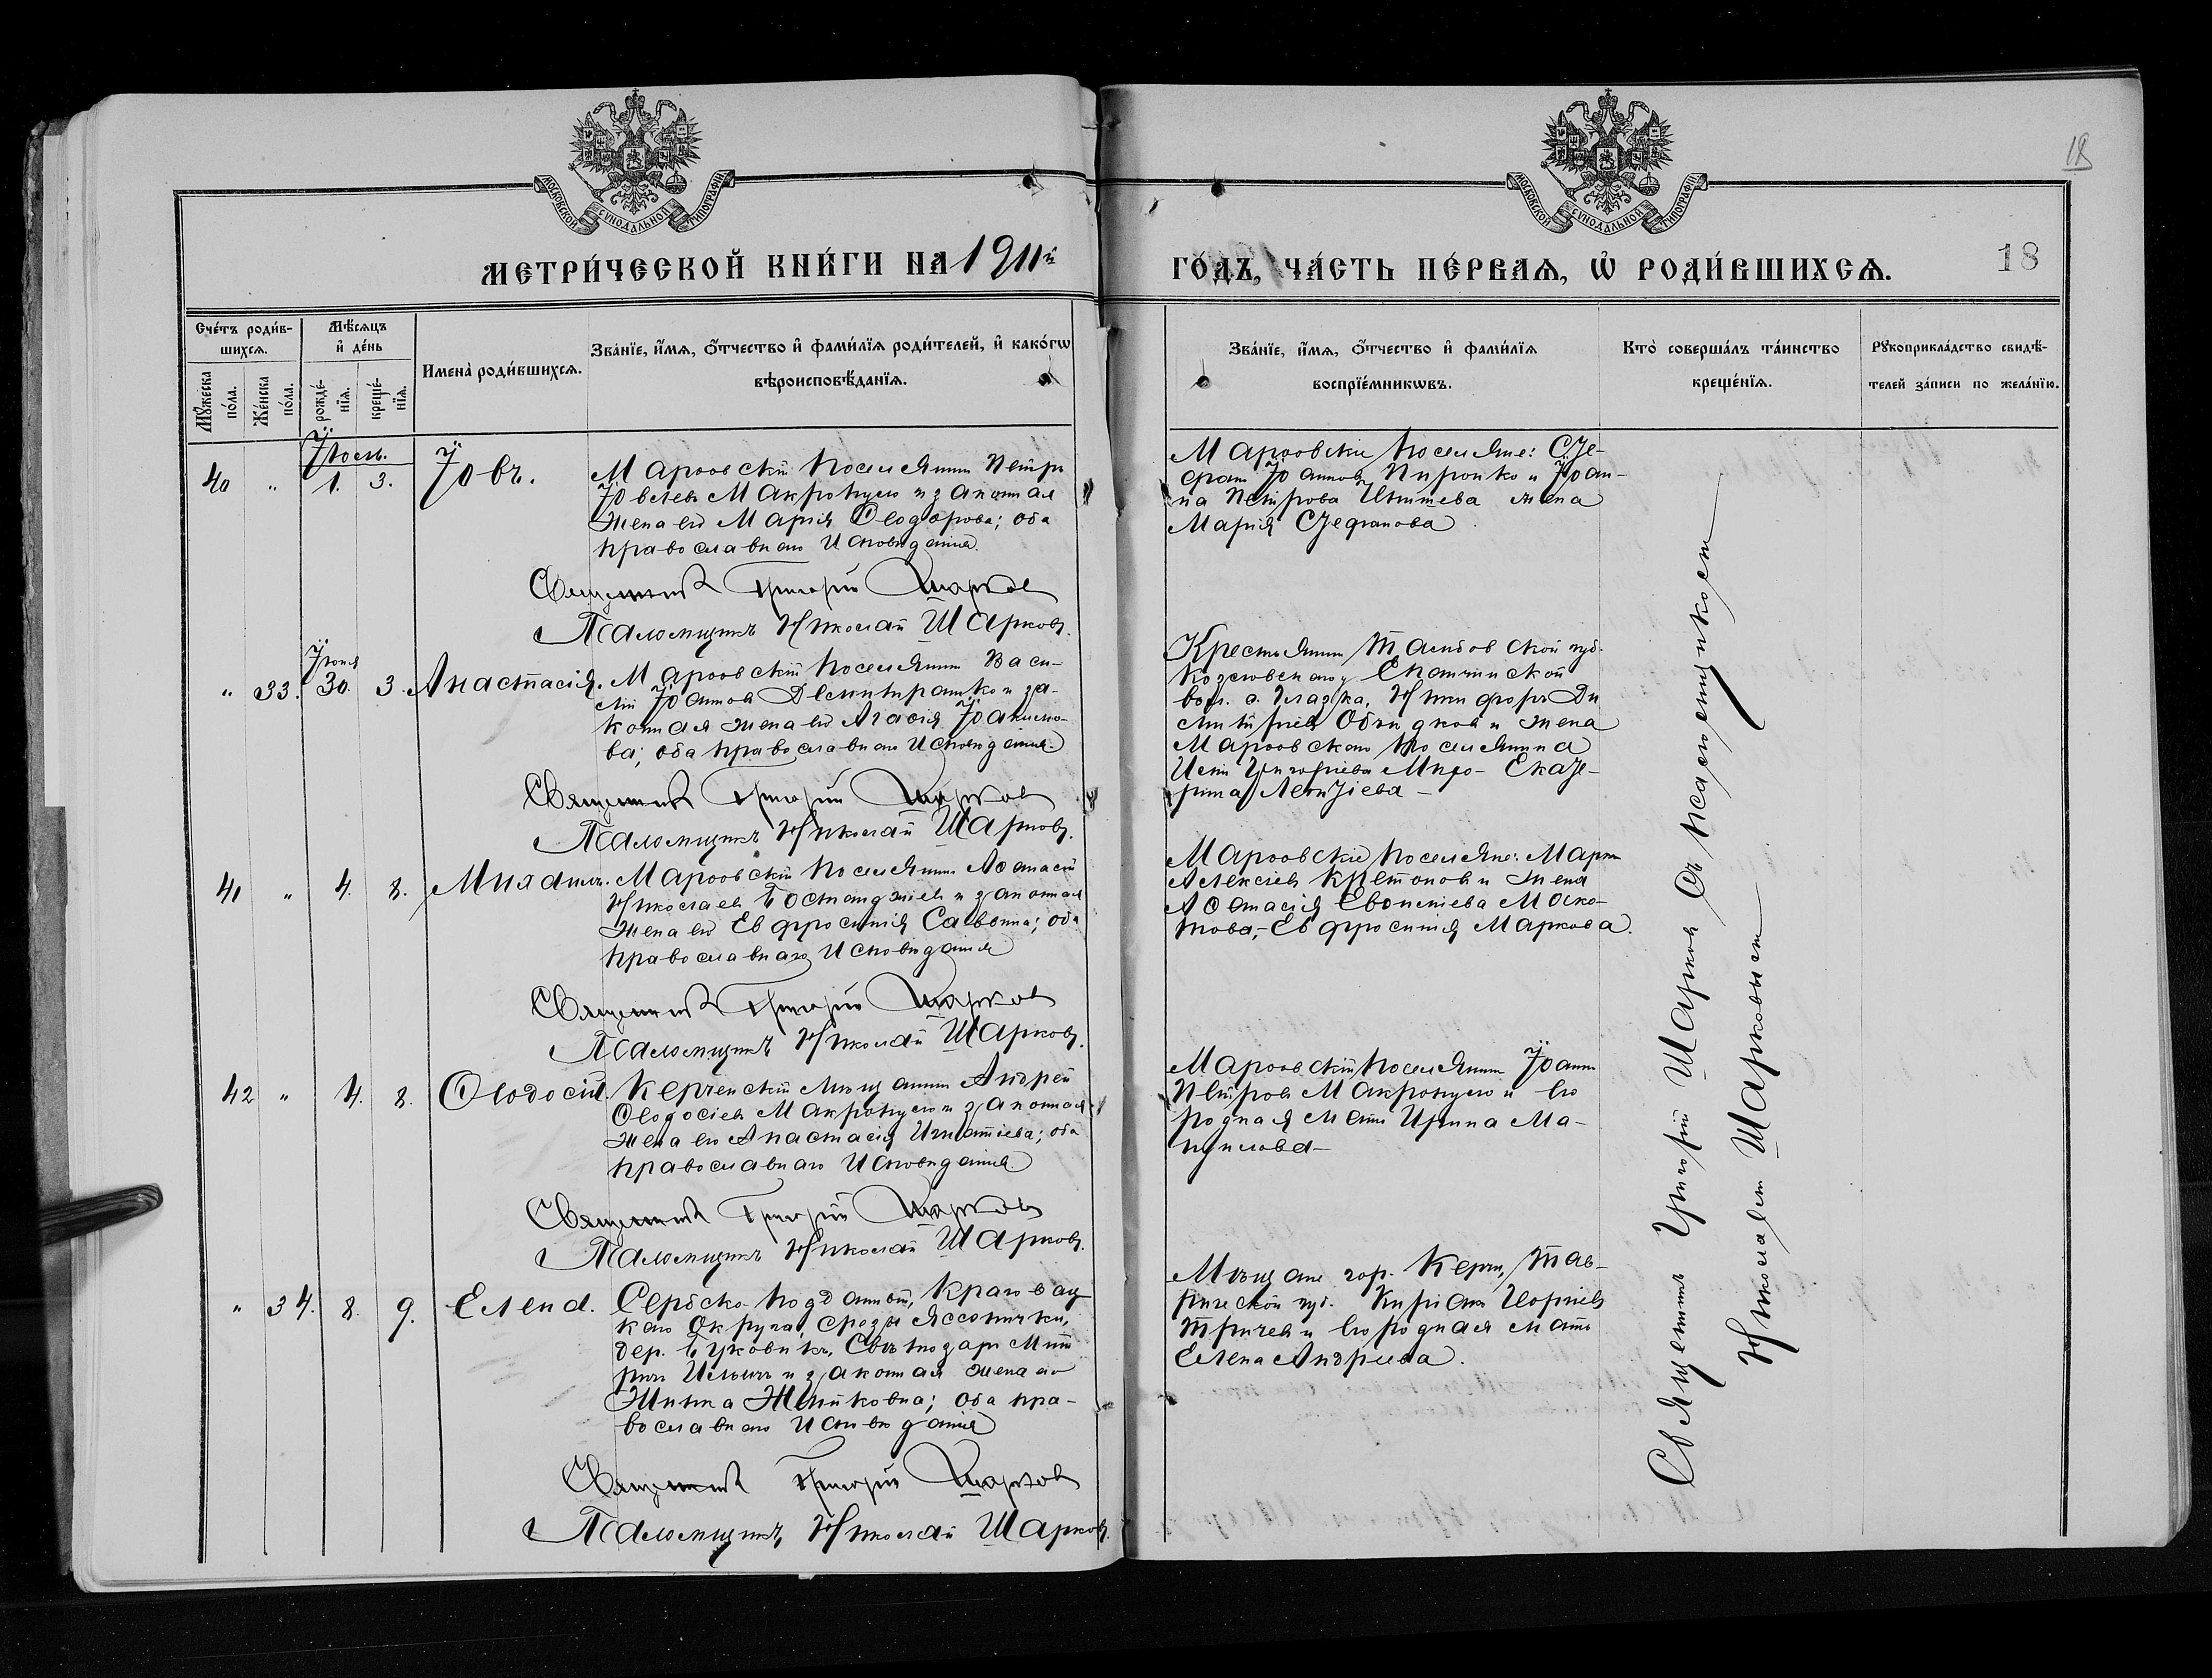 18
МОСКОВСКОЙ СУНОДАЛЬНОЙ ТИПОГРАФІИ
МОСКОВСКОЙ СУНОДАЛЬНОЙ ТИПОГРАФІИ
МЕТРИ́ЧЕСКОЙ КНИ́ГИ НА 1911й
ГО́ДЪ, ЧА́СТЬ ПЕ́РВАѦ, Ѡ РОДИ́ВШИХСѦ.
18
Сче́тъ роди́в-
шихсѧ.
Мꙋ́жеска
по́ла.
Же́нска
по́ла.
Мѣ́сѧцъ
и҆ де́нь
рожде́-
нїѧ.
креще́-
нїѧ.
Имена̀ роди́вшихсѧ.
Зва́нїе, и҆́мѧ, о҆́тчество и҆ фами́лїѧ роди́телей, и҆ како́гѡ
вѣроисповѣ́данїѧ.
Зва́нїе, и҆́мѧ, о҆́тчество и҆ фами́лїѧ
воспрїе́мникѡвъ.
Кто̀ соверша́лъ та́инство
креще́нїѧ.
Рꙋкоприкла́дство свидѣ́-
телей за́писи по жела́нїю.
Іюль.
40 " 1. 3. Іовъ.
Марѳовскій поселянинъ Петръ
Іовлевъ Макропуло и законная
жена его Марія Ѳеодорова; оба
православнаго исповѣданія.
Священникъ Григорій Шарковъ
Псаломщикъ Николай Шарковъ.
Марѳовскіе поселяне: Сте-
фанъ Іоанновъ Пиронко и Іоан-
на Петрова жена
Марія Стефанова.
Іюня
" 33. 30. 3. Анастасія.
Марѳовскій поселянинъ Васи-
лій Іоанновъ Демитрашко и за-
конная жена его Агаѳія Іоакимо-
ва; оба православнаго исповѣданія.
Священникъ Григорій Шарковъ
Псаломщикъ Николай Шарковъ.
Крестьянинъ Тамбовской губ.
Козловскаго у. Екатининской
вол. с. Никифоръ Ди
митріевъ и жена
Марѳовскаго поселянина
Григоріева Екате-
рина Леонтіева
41 " 4. 8. Михаилъ.
Марѳовскій поселянинъ Аѳанасій
Николаевъ Бостанджіевъ и законная
жена его Евфросинія Саввовна; оба
православнаго исповѣданія
Священникъ Григорій Шарковъ
Псаломщикъ Николай Шарковъ.
Марѳовскіе поселяне: Маркъ
Алексіевъ и жена
Аѳанасія Моско-
това,- Евфросинія Маркова.
42 " 4. 8. Ѳеодосій.
Керченскій мѣщанинъ Андрей
Ѳеодосіевъ Макропуло и законная
жена его Анастасія Игнатіева; оба
православнаго исповѣданія.
Священникъ Григорій Шарковъ
Псаломщикъ Николай Шарковъ.
Марѳовскій поселянинъ Іоаннъ
Петровъ Макропуло и его
родная мать Ирина Ма-
нуилова
" 34. 8. 9. Елена.
Сербско-подданный, Крагоевац
каго округа, срезы Ясеничкы,
дер. Буковикъ, Свѣтозаръ Мит
ричъ Ильичъ и законная жена его
Живка Живковна; оба пра-
вославнаго исповѣданія
Священникъ Григорій Шарковъ
Псаломщикъ Николай Шарковъ.
Мѣщане гор. Керчи, Тав-
рической губ. Киріакъ Георгіевъ
Тричевъ и его родная мать
Елена Андреева.
Священникъ Григорій Шарковъ съ псаломщикомъ
Николаемъ Шарковымъ